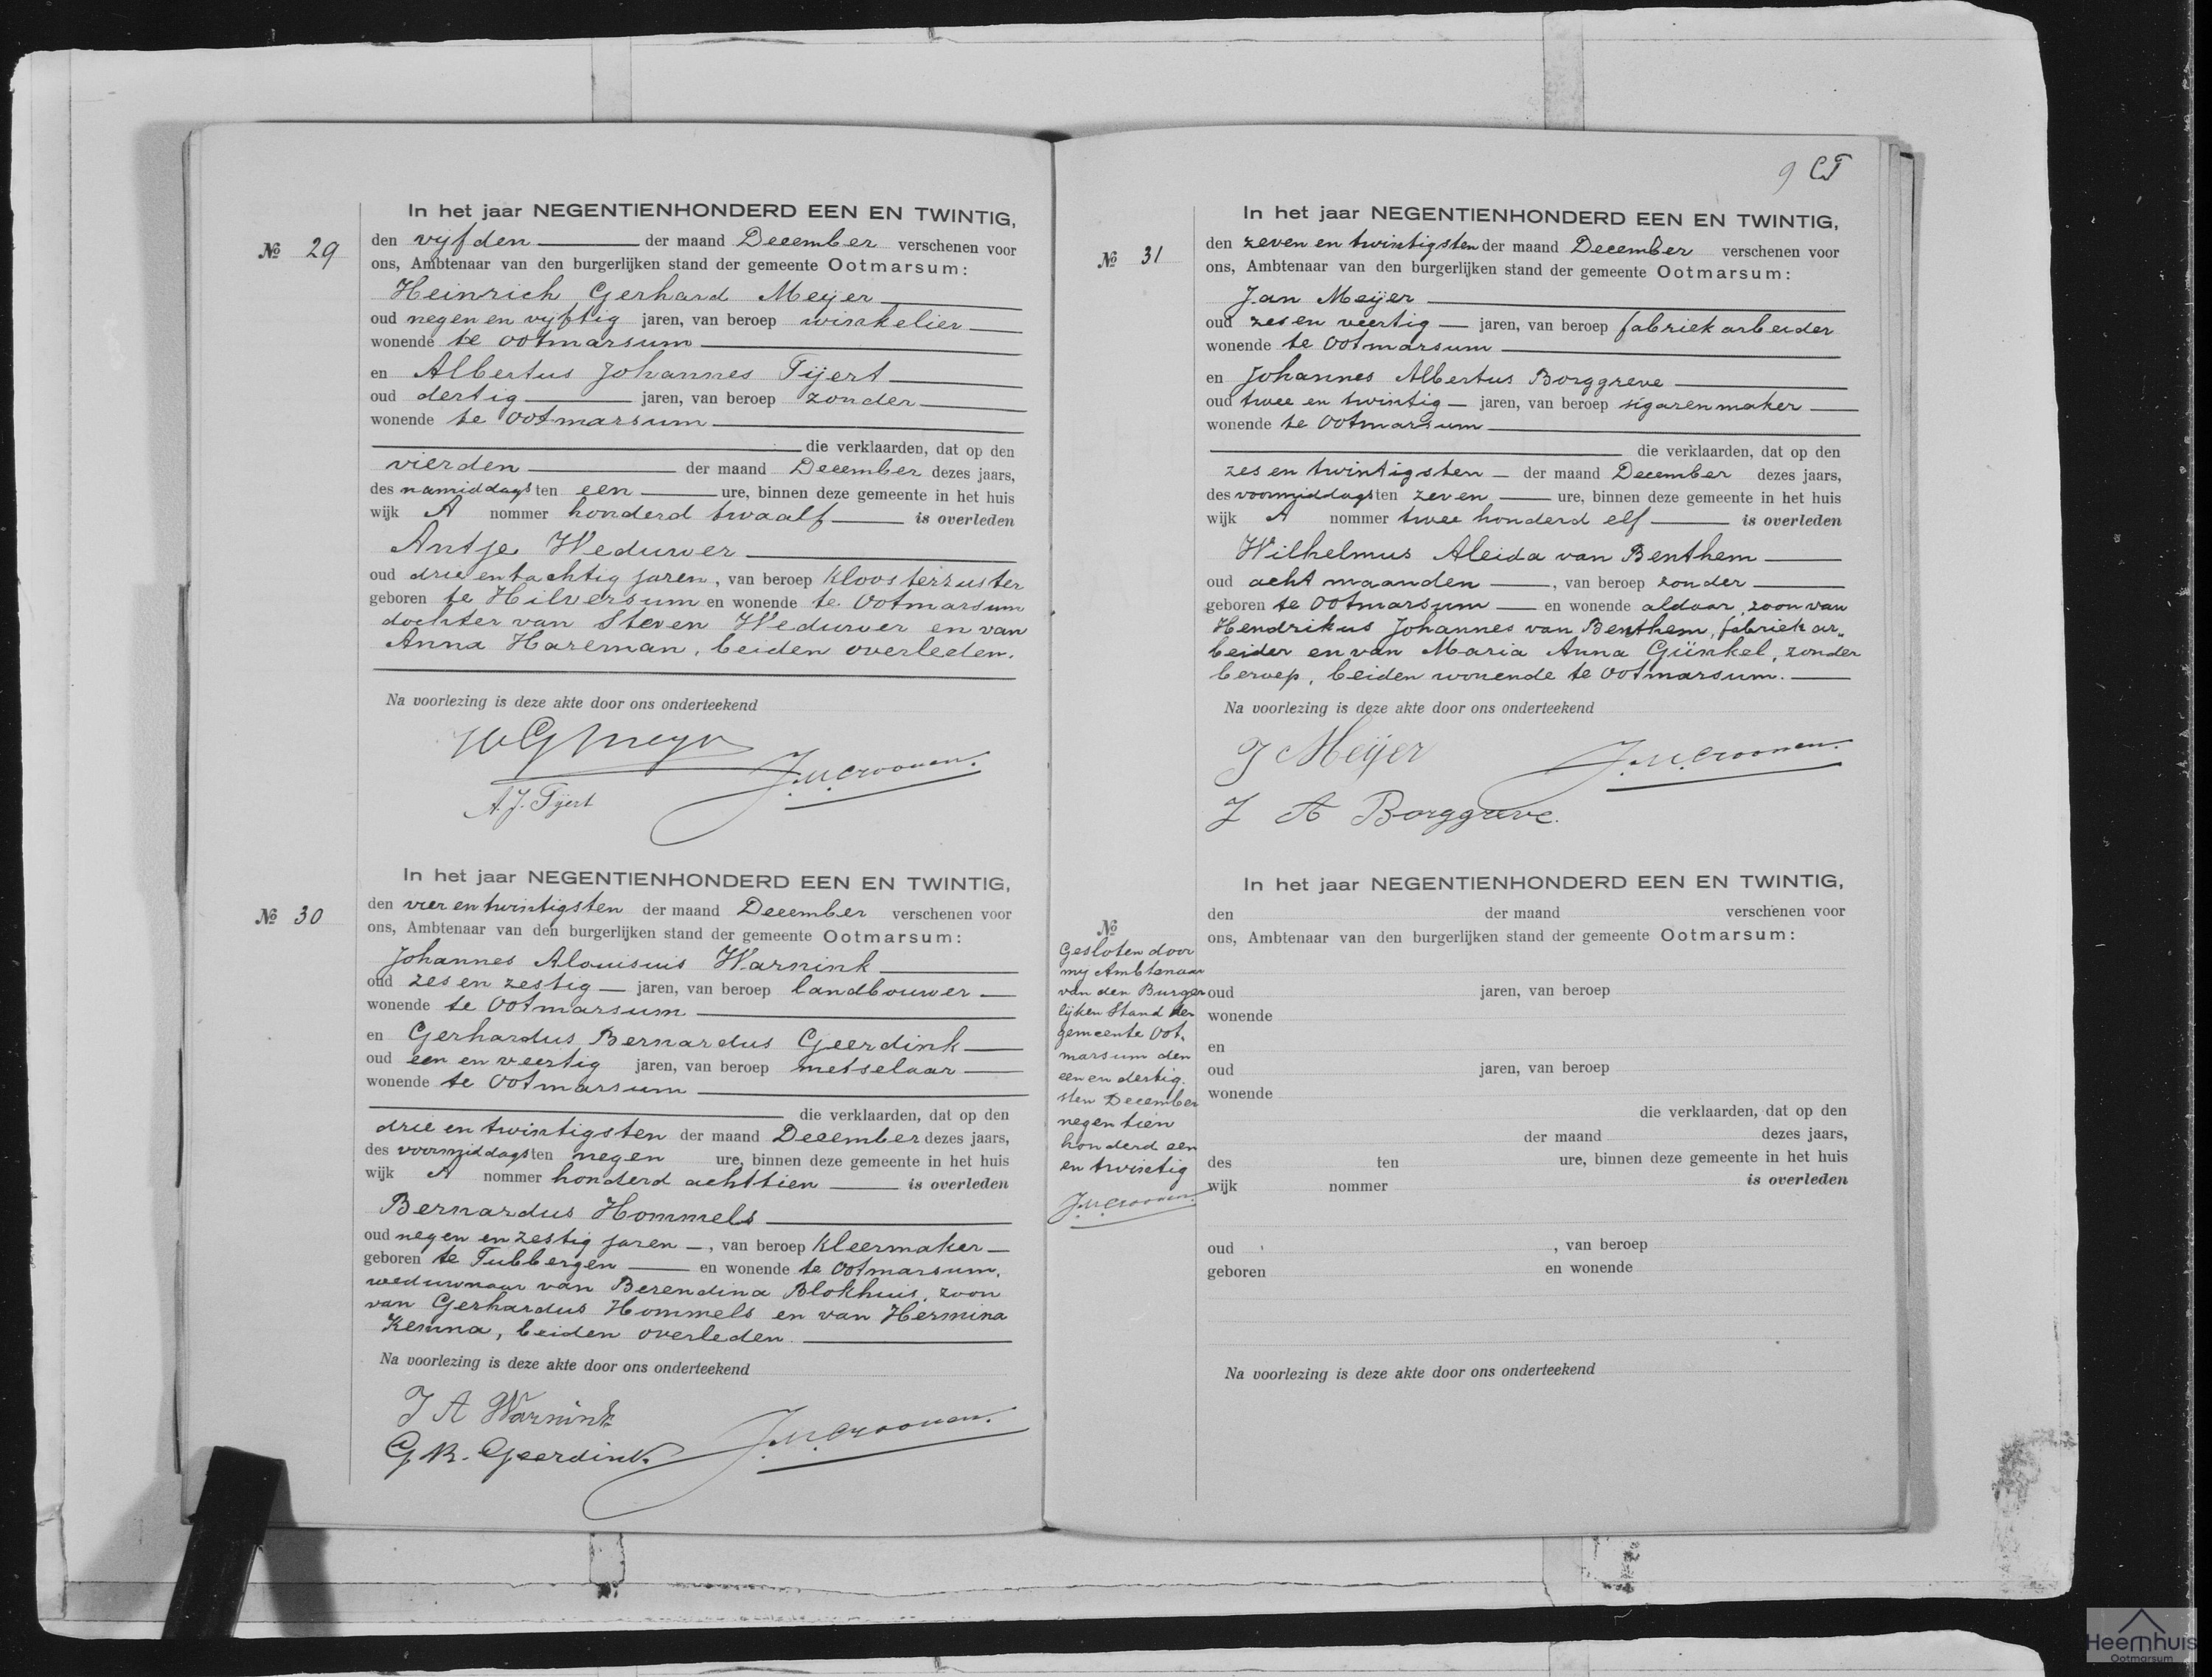 In het jaar NEGENTIENHONDERD EEN EN TWINTIG,
№ 29
den vijfden der maand December verschenen voor
ons, Ambtenaar van den burgerlijken stand der gemeente Ootmarsum:
Heinrich Gerhard Meyer
oud negen en vijftig jaren, van beroep winkelier
wonende te Ootmarsum
en Albertus Johannes Tijert
oud dertig jaren, van beroep zonder
wonende te Ootmarsum
die verklaarden, dat op den
vierden der maand December dezes jaars,
des namiddags ten een ure, binnen deze gemeente in het huis
wijk A nommer honderd twaalf is overleden
Antje Weduwer
oud drie en tachtig jaren, van beroep kloosterzuster
geboren te Hilversum en wonende te Ootmarsum
dochter van Steven Weduwer en van
Anna Hareman, beiden overleden.
Na voorlezing is deze akte door ons onderteekend
HG Meyer
J.M. Croonen.
A.J. Tijert
In het jaar NEGENTIENHONDERD EEN EN TWINTIG,
№ 30
den vier en twintigsten der maand December verschenen voor
ons, Ambtenaar van den burgerlijken stand der gemeente Ootmarsum:
Johannes Alouisuis Warnink
oud zes en zestig jaren, van beroep landbouwer
wonende te Ootmarsum
en Gerhardus Bernardus Geerdink
oud een en veertig jaren, van beroep metselaar
wonende te Ootmarsum
die verklaarden, dat op den
drie en twintigsten der maand December dezes jaars,
des voormiddags ten negen ure, binnen deze gemeente in het huis
wijk A nommer honderd achttien is overleden
Bernardus Hommels
oud negen en zestig jaren, van beroep kleermaker
geboren te Tubbergen en wonende te Ootmarsum,
weduwnaar van Berendina Blokhuis, zoon
van Gerhardus Hommels en van Hermina
Kemna, beiden overleden
Na voorlezing is deze akte door ons onderteekend
J A Warnink
J.M. Croonen.
G.B. Geerdink.
9 CT
In het jaar NEGENTIENHONDERD EEN EN TWINTIG,
№ 31
den zeven en twintigsten der maand December verschenen voor
ons, Ambtenaar van den burgerlijken stand der gemeente Ootmarsum:
Jan Meijer
oud zes en veertig jaren, van beroep fabriekarbeider
wonende te Ootmarsum
en Johannes Albertus Borggreve
oud twee en twintig jaren, van beroep sigarenmaker
wonende te Ootmarsum
die verklaarden, dat op den
zes en twintigsten der maand December dezes jaars,
des voormiddags ten zeven ure, binnen deze gemeente in het huis
wijk A nommer twee honderd elf is overleden
Wilhelmus Aleida van Benthem
oud acht maanden, van beroep zonder
geboren te Ootmarsum en wonende aldaar, zoon van
Hendrikus Johannes van Benthem, fabriek ar„
beider en van Maria Anna Günkel, zonder
beroep, beiden wonende te Ootmarsum.
Na voorlezing is deze akte door ons onderteekend
J Meijer
J.M. Croonen.
J A Borggreve.
In het jaar NEGENTIENHONDERD EEN EN TWINTIG,
den der maand verschenen voor
ons, Ambtenaar van den burgerlijken stand der gemeente Ootmarsum:
oud jaren, van beroep
wonende
en
oud jaren, van beroep
wonende
die verklaarden, dat op den
der maand dezes jaars,
des ten ure, binnen deze gemeente in het huis
wijk nommer is overleden
oud , van beroep
geboren en wonende
Na voorlezing is deze akte door ons onderteekend
№
Gesloten door
my Ambtenaar
van den Burger
lijken Stand der
gemeente Oot,
marsum den
een en dertig.
sten December
negentien
honderd een
en twintig
J.M. Croonen.
Heemhuis
Ootmarsum